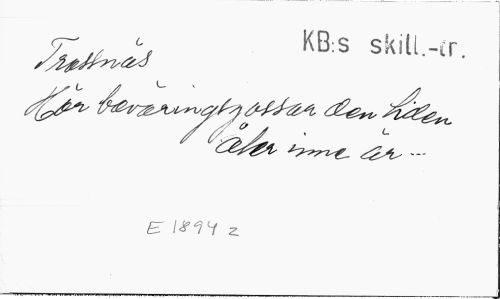 KB:s skill.-tr.
Trossnäs
Hör beväringsgossar den tiden
åter inne är...
E 1894 z